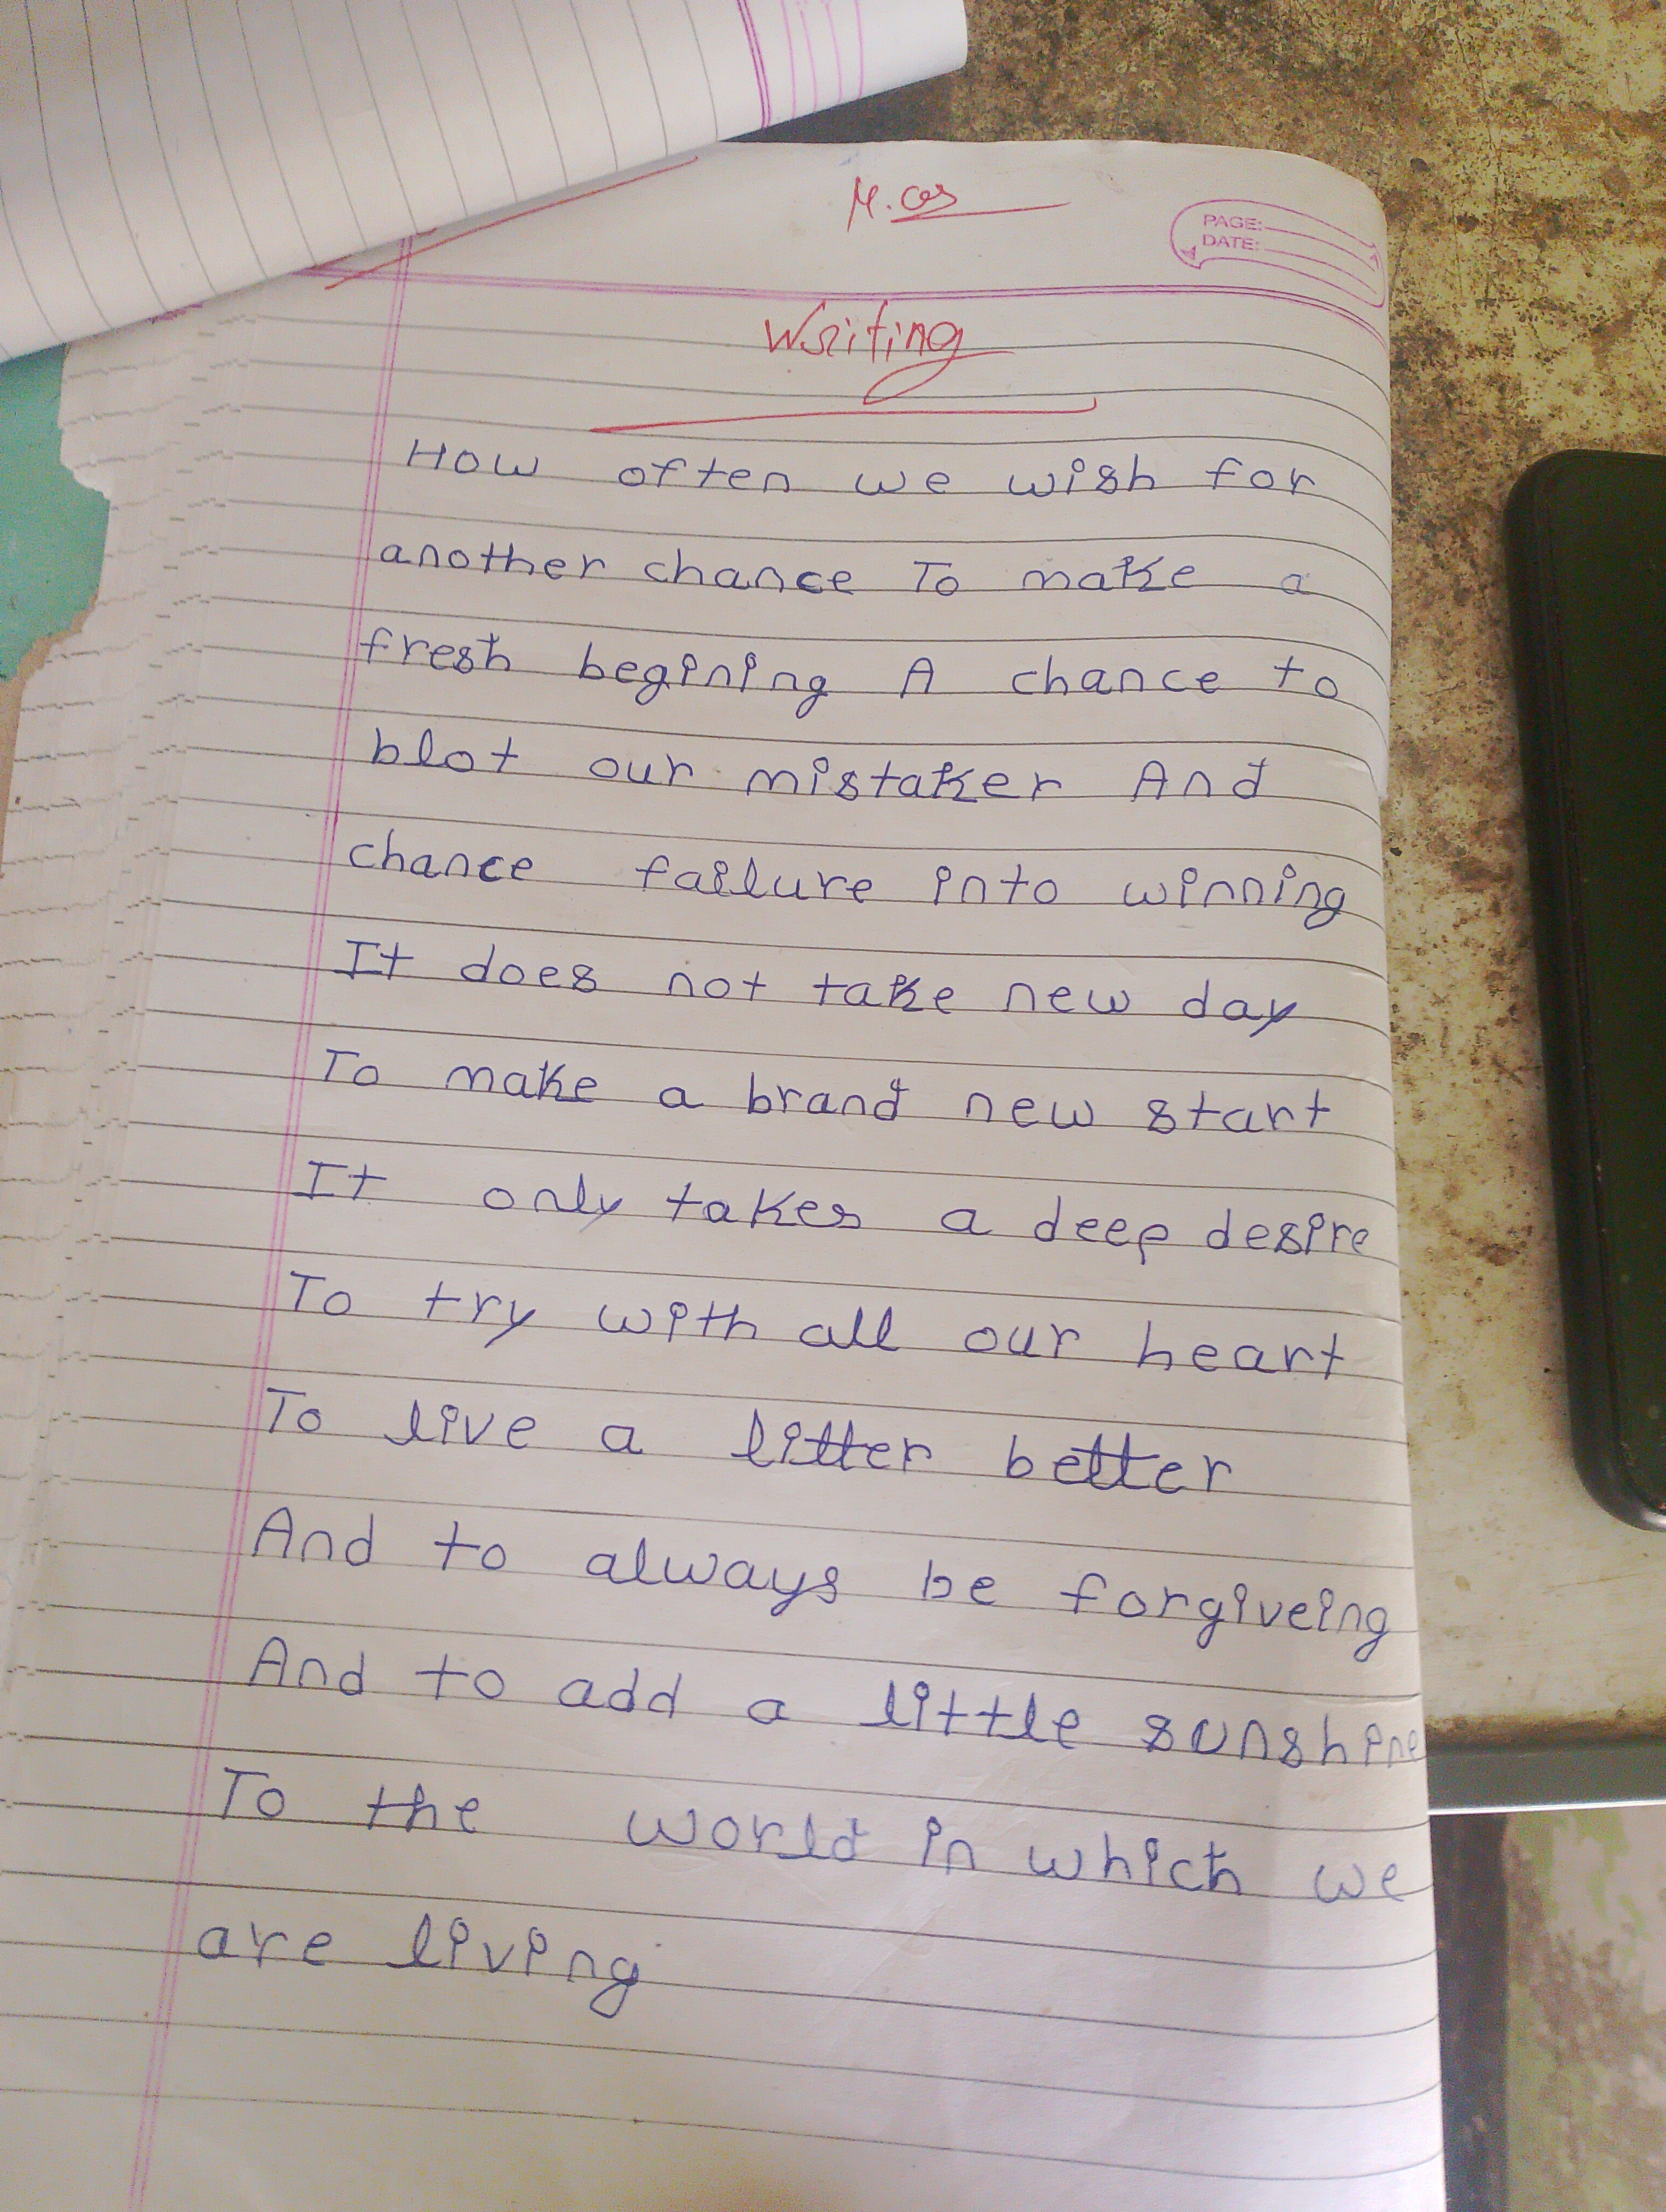 PAGE:
DATE:
Writing
How often we wish for
another chance To make a
fresh begining A chance to
blot our mistaker And
chance failure into winning
It does not take new day
To make a brand new start
It only takes a deep desire
To try with all our heart
To live a litter better
And to always be forgiveing
And to add a little sunshine
To the world in which we
are living